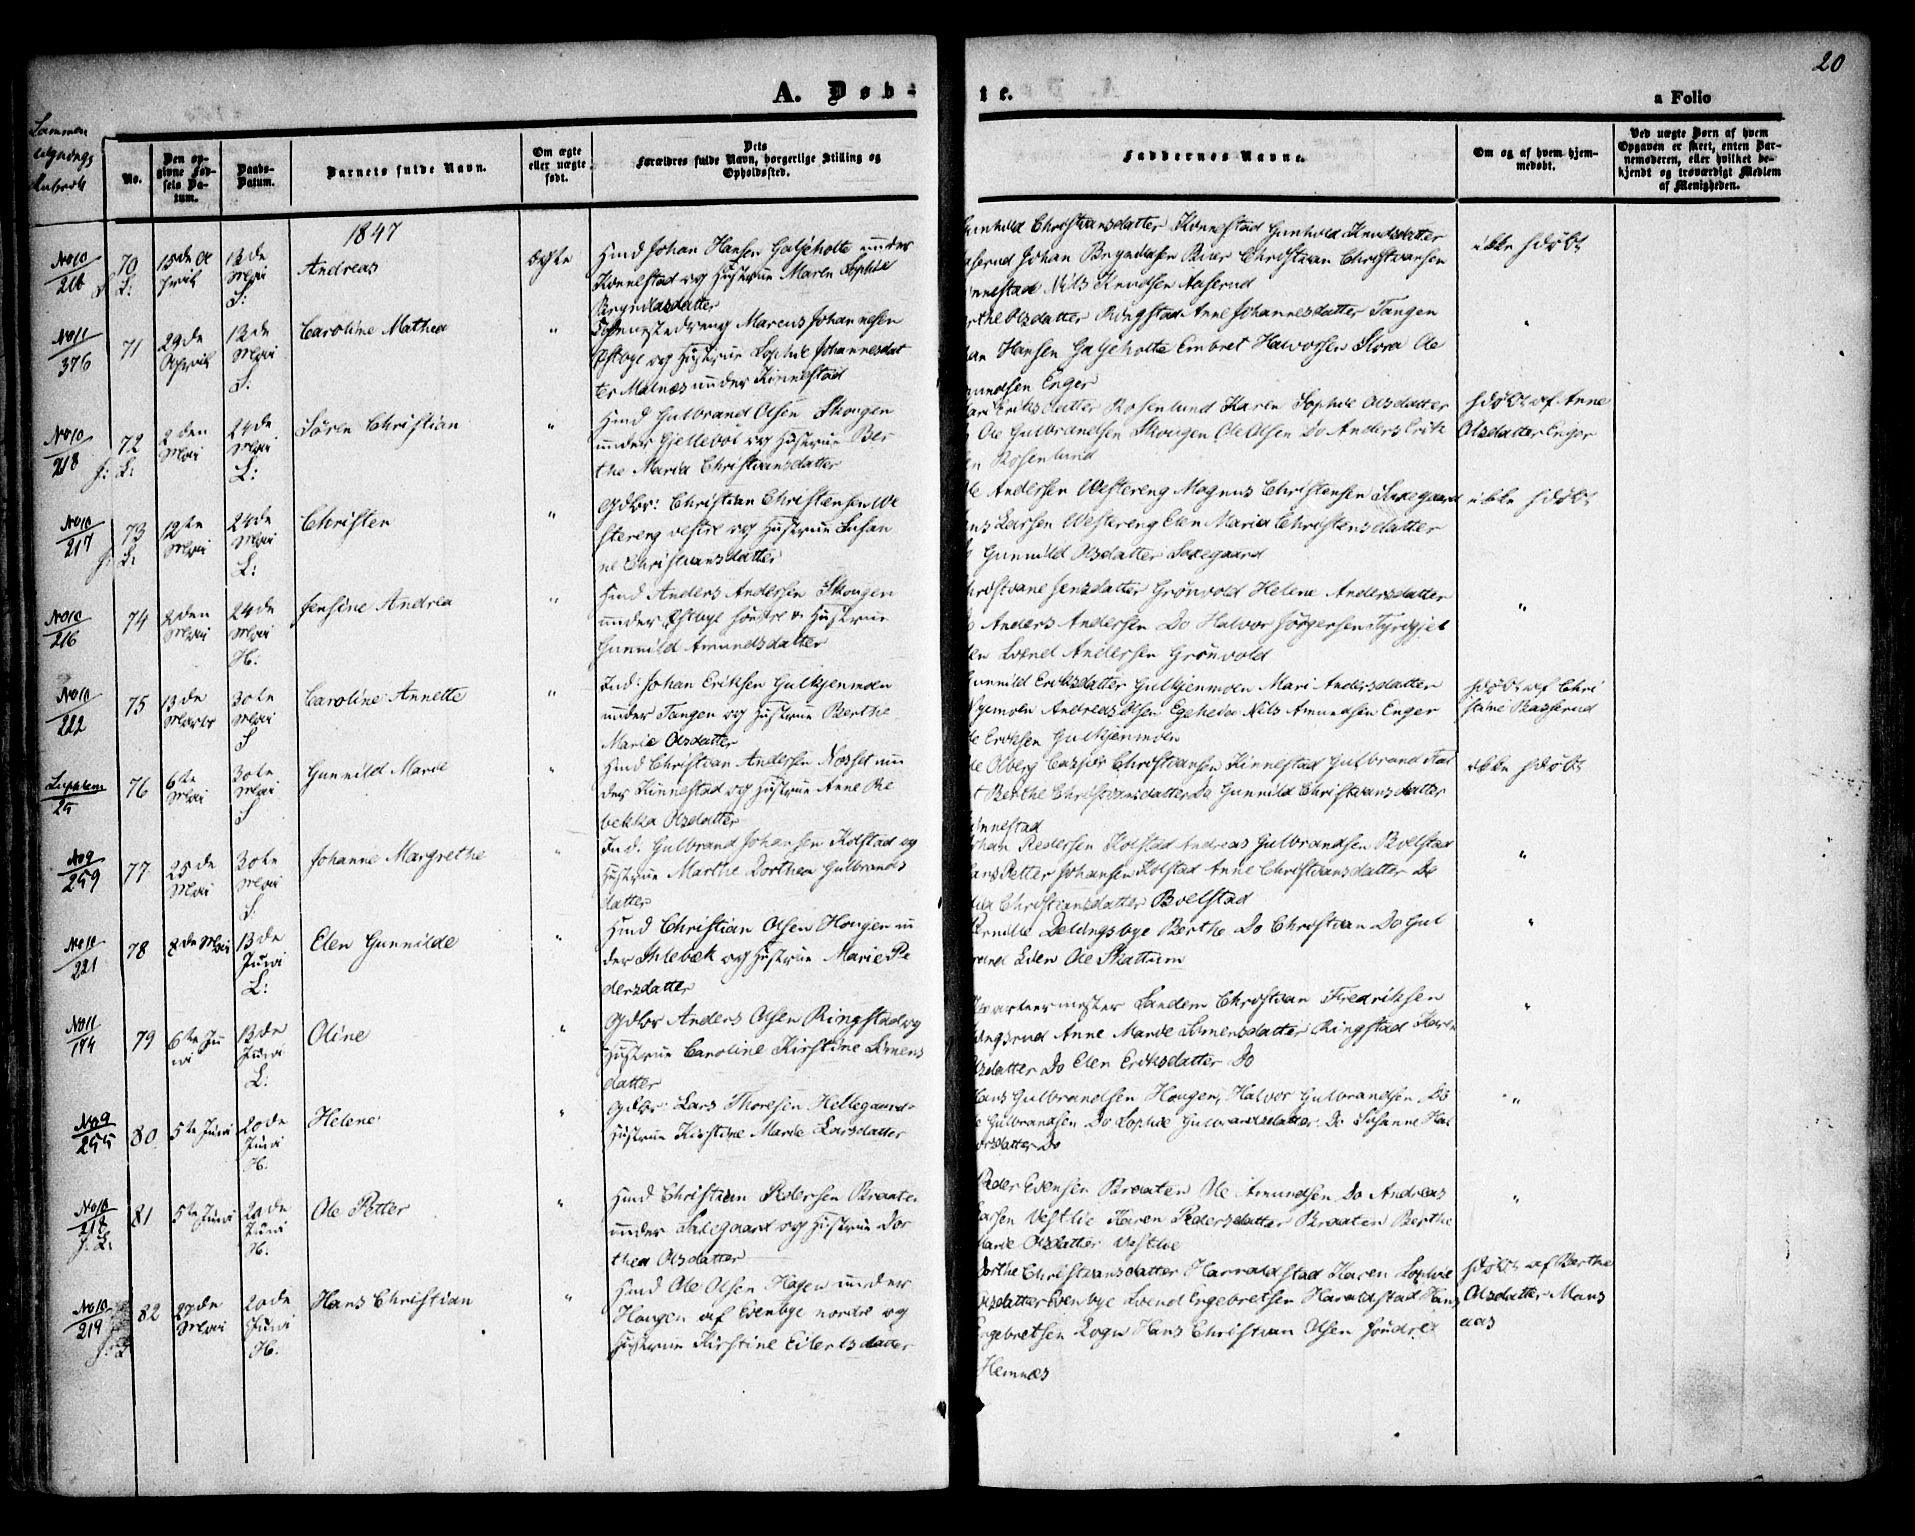 20
A. Døb-
te.
a Folio
Sammen
lignings
Rubrik
No.
Den op-
givne Fød-
sels Da-
tum.
Daabs-
Datum.
Barnets fulde Navn.
Om ægte
eller uægte
født.
Dets
Forældres fulde Navn, borgerlige Stilling og
Opholdssted.
Faddernes Navne.
Om og af hvem hjem-
medøbt.
Ved uægte Børn af hvem
Opgaven er skeet, enten Bar-
nemoderen, eller hvilket be-
kjendt og troværdigt Medlem
af Menigheden.
1847
No 10
216
70
13de
Mai
Andreas
ægte
Huusmd Johan Hansen Galjeholte under
Kinnestad og Hustrue Maren Sophie
Bryndildsdatter
Gunhild Christiansdatter Kinnestad Gunhild Knudsdatter
Aaserud Johan Christian Christiansen
Kinnestad Nils Knudsen Aaserud
ikke hdøbt
No 11
376
71
29de
April
13de
Mai
Caroline Mathea
"
Marcus Johannesen
og Hustrue Sophie Johannesdat
ter Malnæs under Kinnestad
Olsdatter Ringstad Anne Johannesdatter Tangen
Hansen Galjeholte Embret Halvorsen Slora Ole
Enger
"
No 10
218
72
2den
Mai
24de
Mai
L:
Søren Christian
"
Huusmd Gulbrand Olsen Skougen
under Gjellebøl og Hustrue Ber
the Maria Christiansdatter
Mari Eriksdatter Rosenlund Karen Sophie Olsdatter
Ole Gulbrandsen Skougen Ole Olsen Do Anders Erik
sen Rosenlund
hdøbt af Anne
Olsdatter Enger
No 10
217
73
19te
Mai
24de
Mai
L:
Christen
"
Gdbr: Christian Christensen We
stereng vestre og Hustrue Susan
ne Christiansdatter
Ole Andersen Westereng Magnus Christensen
Hans Larsen Westereng Elen Maria Christensdatter
Gunnild Olsdatter
ikke hdøbt
No 10
216
74
2den
Mai
24de
Mai
H:
Jensine Andrea
"
Huusmd Anders Andersen Skougen
under Østbye søndre & Hustrue
Gunnild Amundsdatter
Christiane Jensdatter Grønvold Helene Andersdatter
Anders Andersen Do Halvor Jørgersen
Andersen Grønvold
"
No 10
222
75
13de
Marts
30te
Mai
Caroline Annette
"
Ind: Johan Eriksen Gulkjenmoen
under Tangen og Hustrue Berthe
Marie Olsdatter
Gunnild Eriksdatter Gulkjenmoen Mari Andersdatter
Andreas Olsen Egeheia Nils Amundsen Enger
Ole Eriksen Gulkjenmoen
hdøbt af Chri
stine
25
76
6te
Mai
30te
Mai
Gunnild Marie
"
Huusmd Christian Andersen Næsset un
der Kinnestad og Hustrue Anne Re
bekka Olsdatter
Casper Christiansen Kinnestad Gulbrand
Berthe Christiansdatter Do Gunnild Christiansdatter
Kinnestad
ikke hdøbt
No 9
259
77
25de
Mai
30te
Mai
Johanne Margrethe
"
Ind: Gulbrand Johansen Kolstad og
Hustrue Marthe Dorthea Gulbrands
datter
Johan Pedersen Kolstad Andreas Gulbrandsen Boelstad
Hans Petter Johansen Kolstad Anne Christiansdatter Do
Christiansdatter Boelstad
"
No 10
221
78
2de Mai
13de
Juni
L:
Elen Gunnilde
"
Huusmd Christian Olsen Hougen un
der Ihlebæk og Hustrue Marie Pe
dersdatter
Pernille Delingsbye Berthe Do Christian Do Gul
brand Lien Ole Skattum
"
No 11
174
79
6te Ju
ni
13de
Juni
L:
Oline
"
Gdbr Anders Olsen Ringstad og
Hustrue Caroline Kirstine Simens
datter
Qvarteermester Sandem Christian Fredriksen
Anne Marie Simensdatter Ringstad Karen
Olsdatter Do Elen Eriksdatter Do
"
No 9
255
80
5te Juni
20de
Juni
H:
Helene
"
Gdbr: Lars Thoresen Hellegaard
Hustrue Kirstine Marie Larsdatter
Hans Gulbrandsen Hougen, Halvor Gulbrandsen Do
Gulbrandsen Do Sophie Gulbrandsdatter Do Susanne Hal
vorsdatter Do
"
No 10
218
81
5te Juni
20de
Juni
H:
Ole Petter
"
Huusmd Christian Pedersen Braaten
under og Hustrue Dor
thea Olsdatter
Peder Evensen Braaten Ole Amundsen Do Andreas
Larsen Vestlie Karen Pedersdatter Braaten Berthe
Marie Olsdatter Vestlie
"
No 10
219
82
27de
Mai
20de
Juni
H:
Hans Christian
"
Huusmd Ole Olsen Hagen under
Hougen af Evenbye nordre og
Hustrue Kirstine Eilertsdatter
Dorthe Christiansdatter Harraldstad Karen Sophie
Olsdatter Evenbye Svend Engebretsen Haraldstad Hans
Engebretsen Hans Christian Olsen søndre
Hemnæs
hdøbt af Berthe
Olsdatter Mans
aas